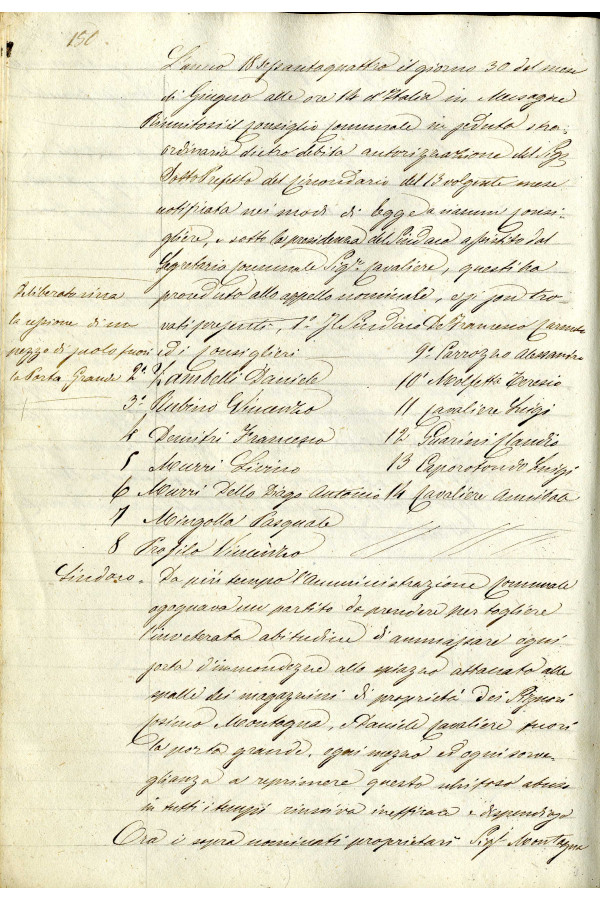 150
L'anno 18settantaquattro il giorno 30 del mese
di Giugno alle ore 14 d'Italia in Mesagne
Riunitosi il Consiglio Comunale in seduta stra-
ordinaria dietro debita autorizzazione del Sigr
Sotto Prefetto del Circondario del 13 volgente mese
notificata nei modi di legge a ciascun Consi-
gliere, e sotto la presidenza del Sindaco assistito dal
Segretario Comunale Sigr Cavaliere, questi ha
proceduto allo appello nominale, e si son tro-
vati presenti, 1º Il Sindaco De Francesco Carmelo
ed i Consiglieri
Deliberato circa
la cessione di un
pezzo di suolo fuori
la Porta Grande
2º Zambelli Daniele
3º Rubino Vincenzo
4 Demitri Francesco
5 Murri Livino
6 Murri Dello Diago Antonio
7 Mingolla Pasquale
8 Profilo Vincenzo
9º Carrozzo Alessandro
10º Molfetta Teresio
11 Cavaliere Luigi
12 Guarini Claudio
13 Caporotondo Luigi
14 Cavaliere
Sindaco. Da più tempo l'Amministrazione Comunale
agognava un partito da prendere per togliere
l'inveterata abitudine di ammassare ogni
sorta d'immondezze allo spiazzo attaccato alle
spalle dei magazzini di proprietà dei Signori
Cosimo Montagna, e Daniele Cavaliere fuori
la porta grande. ogni mezzo ed ogni sorve-
glianza a reprimere questo schifoso abuso
in tutti i tempi riusciva inefficace e dispendioso
Ora i sopra nominati proprietari Sigri Montagna